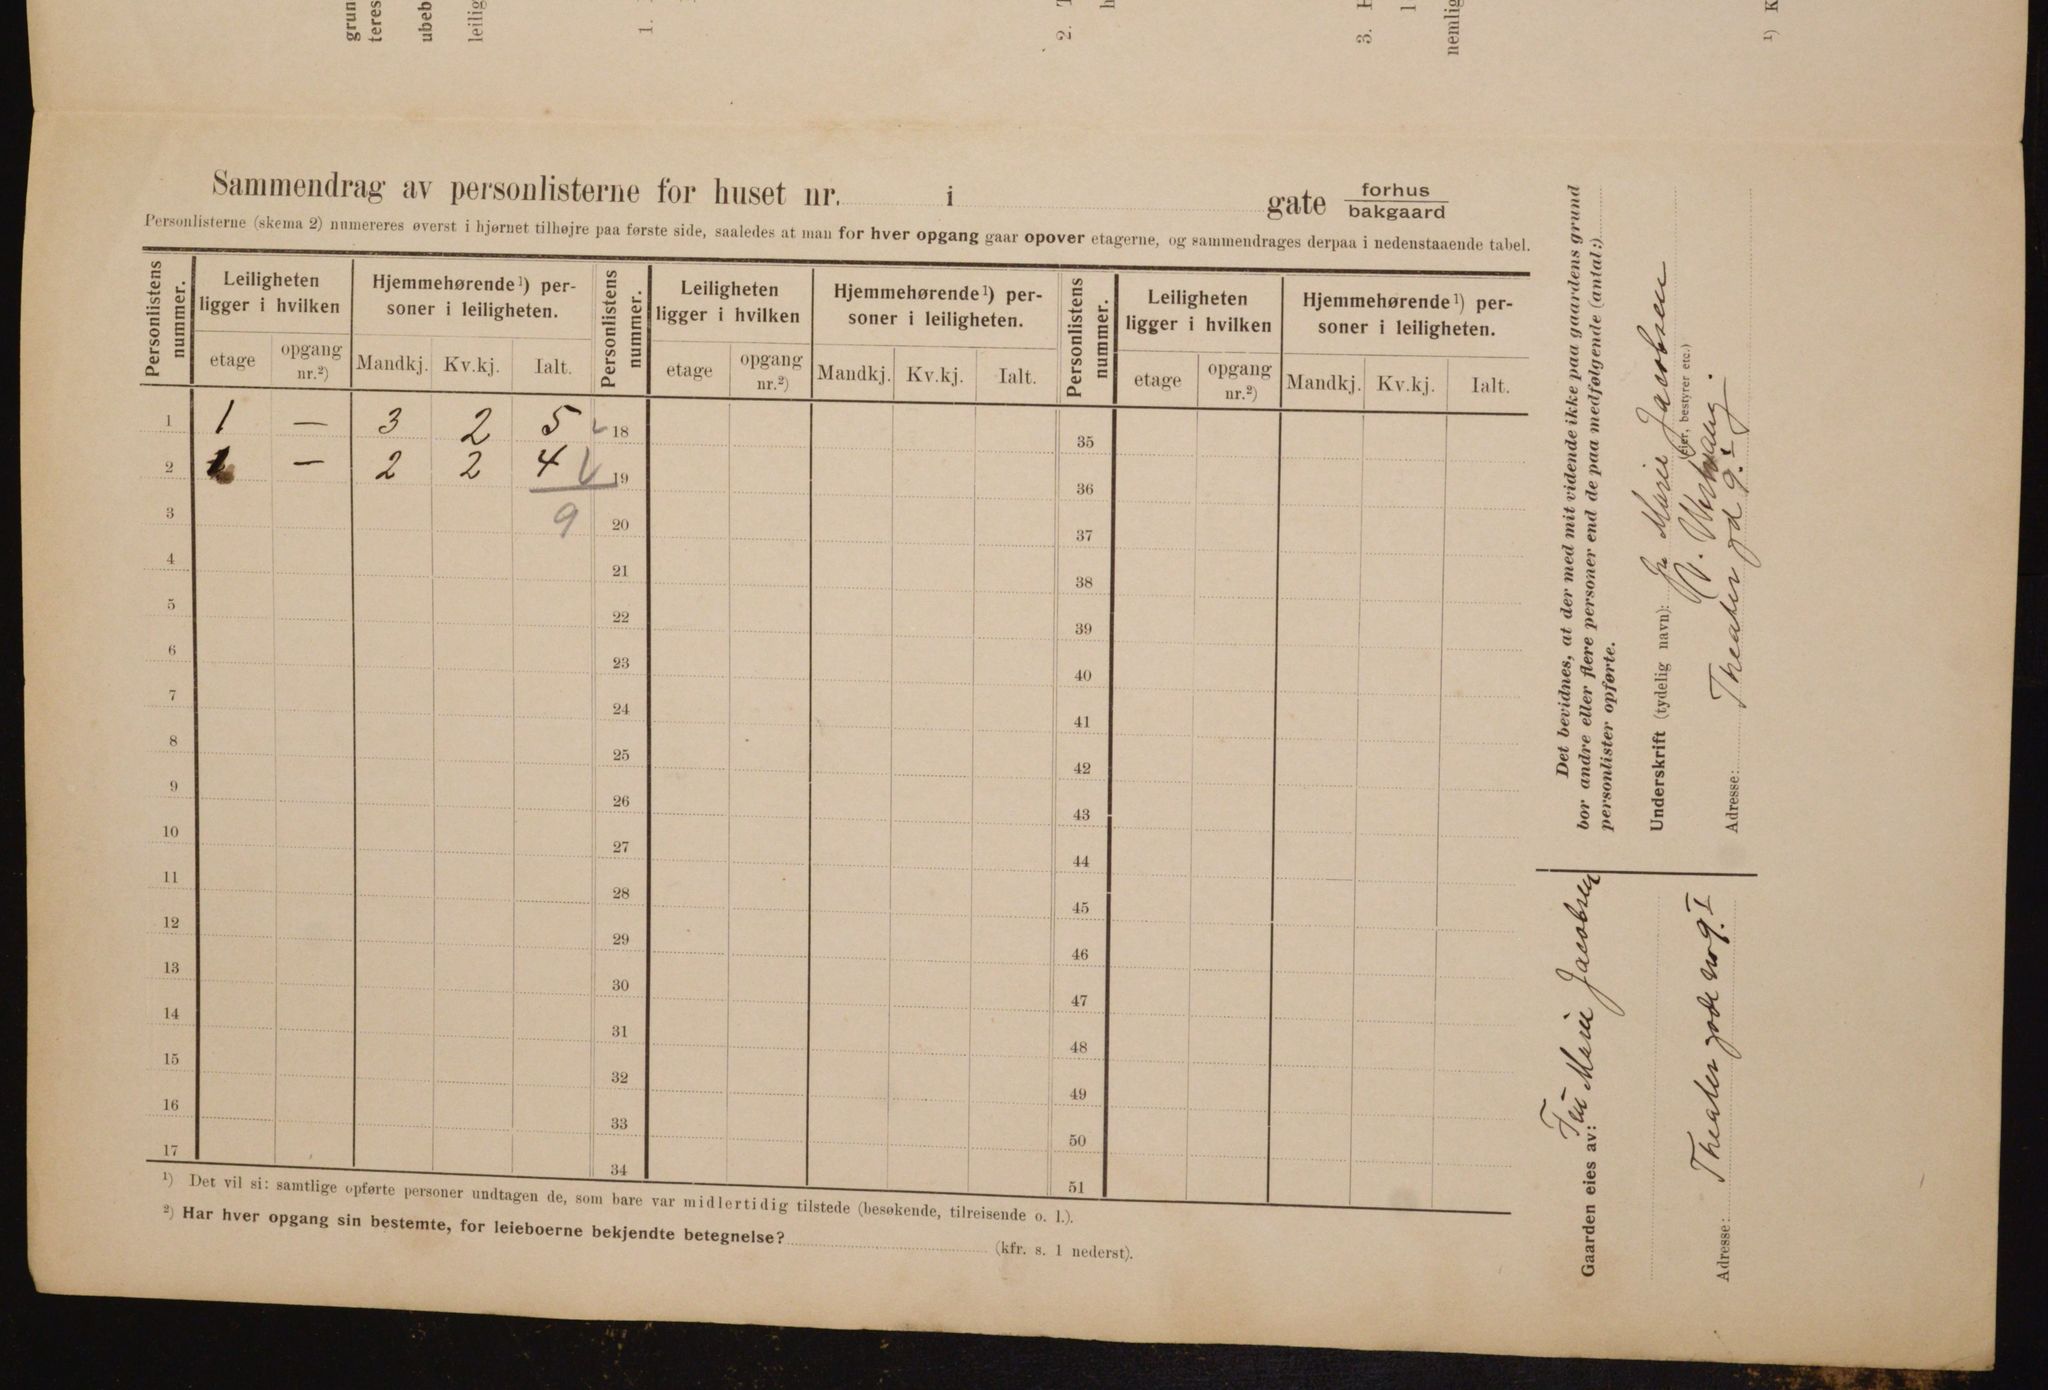 grun
teres
ubeb
leilig
1.
2. T
h
3. H
l
nemlig
1) K
Sammendrag av personlisterne for huset nr. i gate forhus
bakgaard
Personlisterne (skema 2) numereres øverst i hjørnet tilhøjre paa første side, saaledes at man for hver opgang gaar opover etagerne, og sammendrages derpaa i nedenstaaende tabel.
Personlistens nummer. Leiligheten ligger i hvilken Hjemmehørende 1) personer i leiligheten. Personlistens nummer. Leiligheten ligger i hvilken Hjemmehørende 1) personer i leiligheten. Personlistens nummer. Leiligheten ligger i hvilken Hjemmehørende 1) personer i leiligheten.
etage opgang nr.2) Mandkj. Kv.kj. Ialt. etage opgang nr.2) Mandkj. Kv.kj. Ialt. etage opgang nr.2) Mandkj. Kv.kj. Ialt.
1 1 — 3 2 5 18 35
2 — 2 2 4 19 36
3 9 20 37
4 21 38
5 22 39
6 23 40
7 24 41
8 25 42
9 26 43
10 27 44
11 28 45
12 29 46
13 30 47
14 31 48
15 32 49
16 33 50
17 34 51
1) Det vil si: samtlige opførte personer undtagen de, som bare var midlertidig tilstede (besøkende, tilreisende o. l.).
2) Har hver opgang sin bestemte, for leieboerne bekjendte betegnelse? (kfr. s. 1 nederst).
Det bevidnes, at der med mit vidende ikke paa gaardens grund
bor andre eller flere personer end de paa medfølgende (antal:)
personlister opførte.
Underskrift (tydelig navn): Fru Marie Jacobsen
(Eier, bestyrer etc.)
Adresse: Theater gd 9. I
Gaarden eies av: Fru Marie Jacobsen
Adresse: Theater gade No 9. I